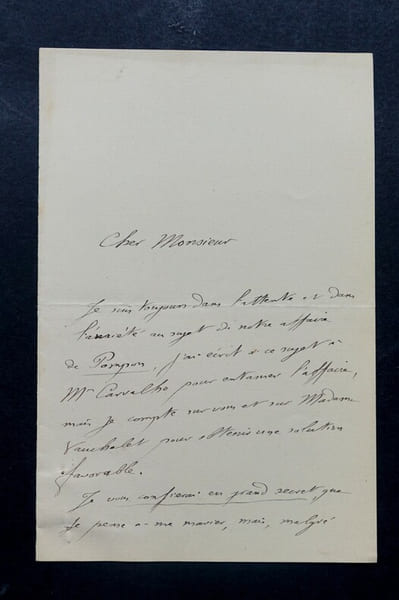 Cher Monsieur
Je suis toujours dans l'attente et dans
l'anxiété au sujet de notre affaire
de Pompon, j'ai écrit à ce sujet à
Mr Carvalho pour entamer l'affaire,
mais je compte sur vous et sur Madame
Vauchelet pour obtenir une solution
favorable.
Je vous confierai en grand secret, que
je pense à me marier, mais, malgré